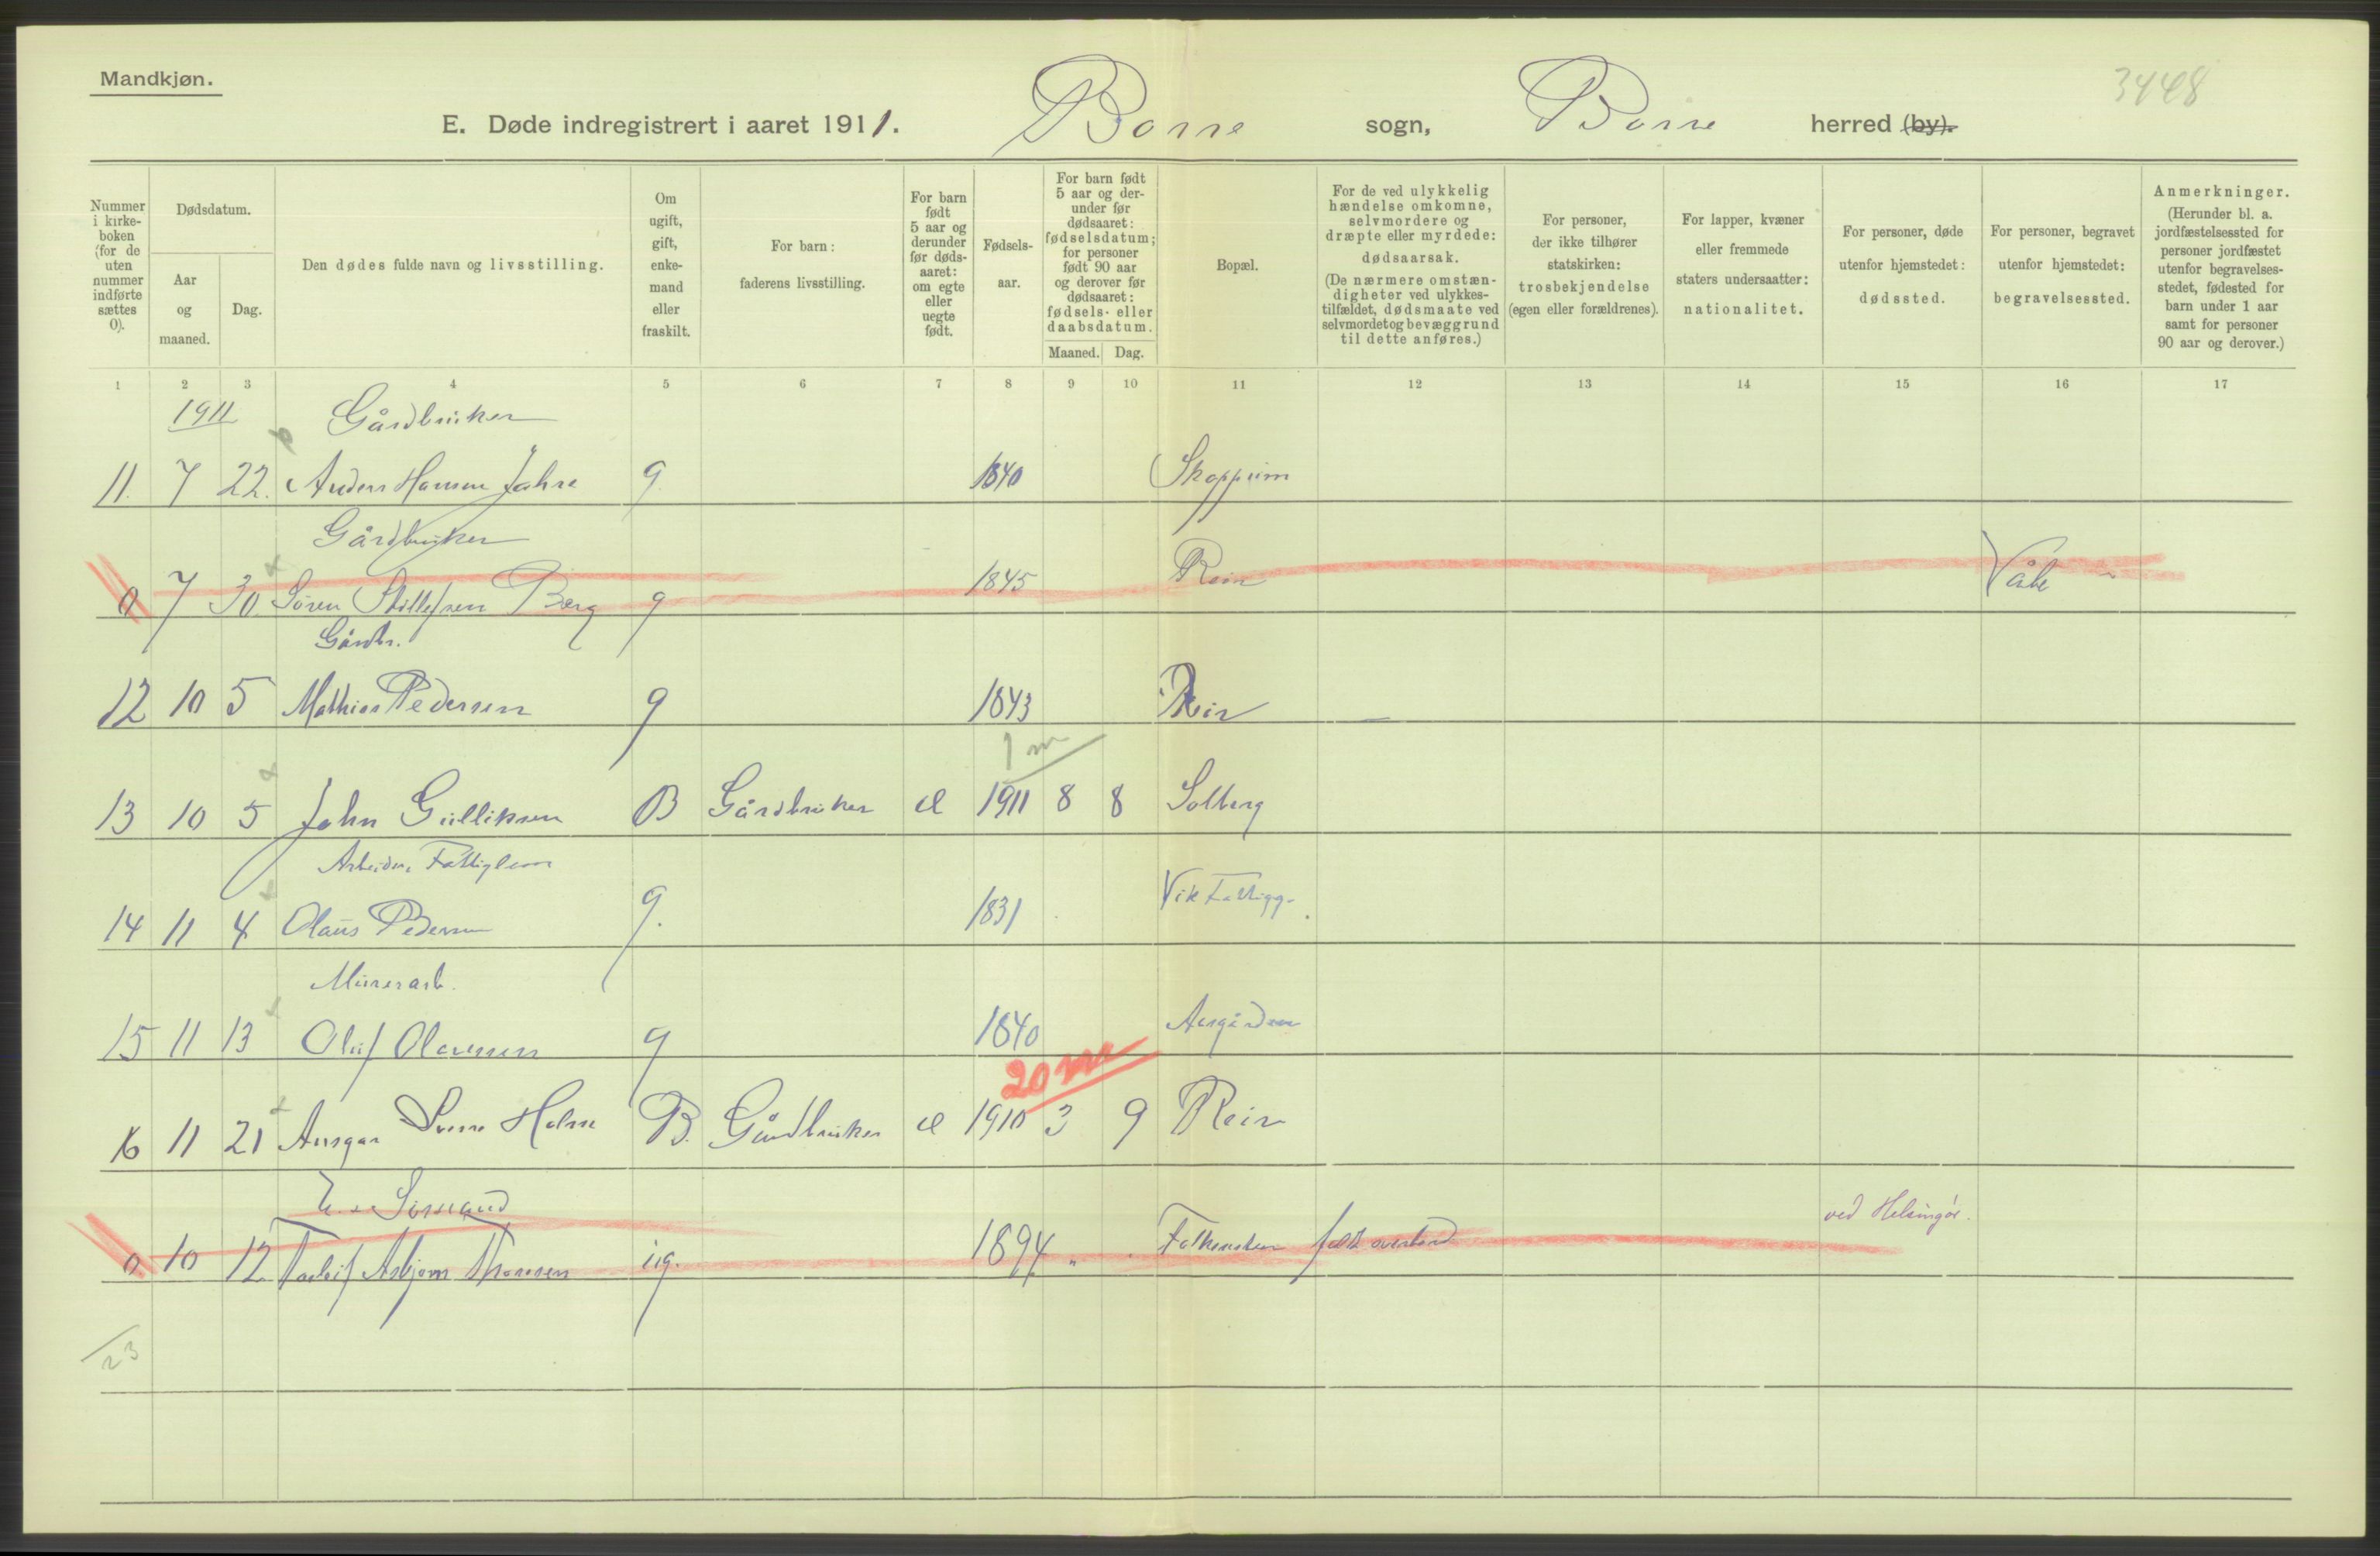 Mandkjøn.
3448
E. Døde indregistrert i aaret 1911. Borre sogn, Borre herred (by).
Nummer i kirkeboken (for de uten nummer indførte sættes 0).
Dødsdatum.
Aar og maaned.
Dag.
Den dødes fulde navn og livsstilling.
Om ugift, gift, enkemand eller fraskilt.
For barn: faderens livsstilling.
For barn født 5 aar og derunder før dødsaaret: om egte eller uegte født.
Fødselsaar.
For barn født 5 aar og derunder før dødsaaret: fødselsdatum; for personer født 90 aar og derover før dødsaaret: fødsels- eller daabsdatum.
Maaned. Dag.
Bopæl.
For de ved ulykkelig hændelse omkomne, selvmordere og dræpte eller myrdede: dødsaarsak. (De nærmere omstændigheter ved ulykkestilfældet, dødsmaate ved selvmordet og bevæggrund til dette anføres.)
For personer, der ikke tilhører statskirken: trosbekjendelse (egen eller forældrenes).
For lapper, kvæner eller fremmede staters undersaatter: nationalitet.
For personer, døde utenfor hjemstedet: dødssted.
For personer, begravet utenfor hjemstedet: begravelsessted.
Anmerkninger. (Herunder bl. a. jordfæstelsessted for personer jordfæstet utenfor begravelsesstedet, fødested for barn under 1 aar samt for personer 90 aar og derover.)
1 2 3 4 5 6 7 8 9 10 11 12 13 14 15 16 17
1911 Gårdbruker
11. 7 22. Anders Hansen Jahre g. 1840 Skoppum
Gårdbruker
0 7 30. Søren Berg g 1845 Reir Våle
Gårdbr.
12 10 5 Mathias Pedersen g 1843 Reir
1 m
13 10 5 John Gulliksen B Gårdbruker e 1911 8 8 Solberg
Arbeider, Fattiglem
14 11 4 Olaus Pedersen g. 1831 Vik Fattigg.
Murerarb.
15 11 13 Oluf Olavesen g 1840
20 m
16 11 21 Ansgar Sverre Holm B. Gårdbruker e 1910 3 9 Reir
Sømand ved Helsingør.
0 10 12 Torleif Asbjørn Thoresen ug. 1894 " Falkensten faldt overbord
23